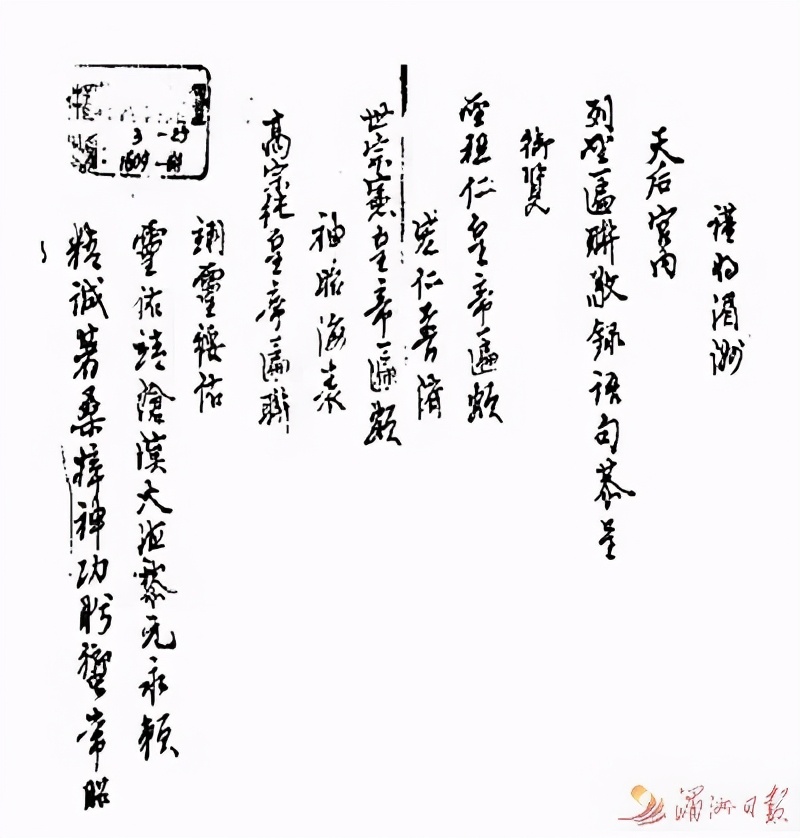 謹将湄洲
天后宮内
列聖匾聯敬録語句恭呈
御覧
聖祖仁皇帝匾額
仁普濟
世宗憲皇帝匾額
神昭海表
髙宗純皇帝匾聯
翊靈綏佑
靈佑靖滄漠大海黎元永賴
精誠著桑梓神功肸蠁常昭
3-29
1609-
湄洲日報